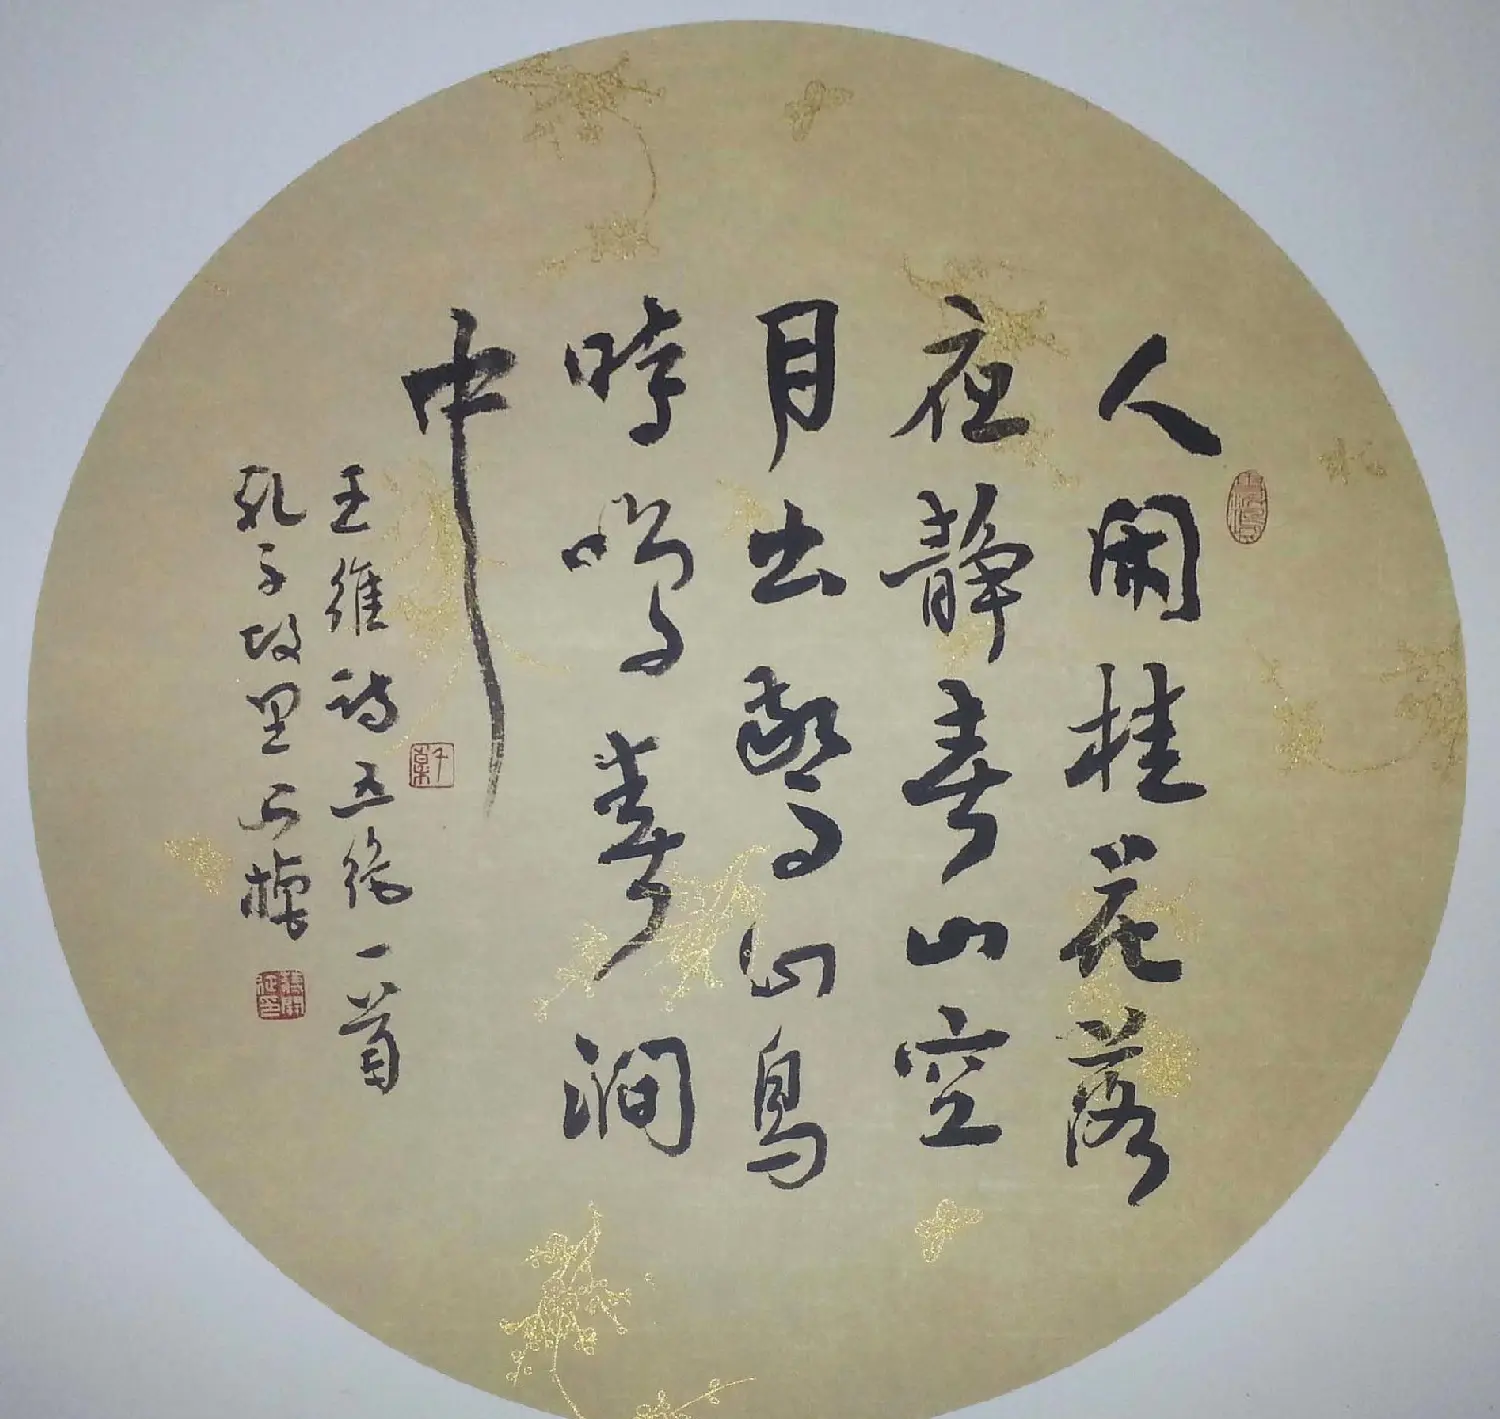 人閑桂花落
夜静春山空
月出驚山鳥
時鳴春澗
中
王維詩五絶一首
孔子故里